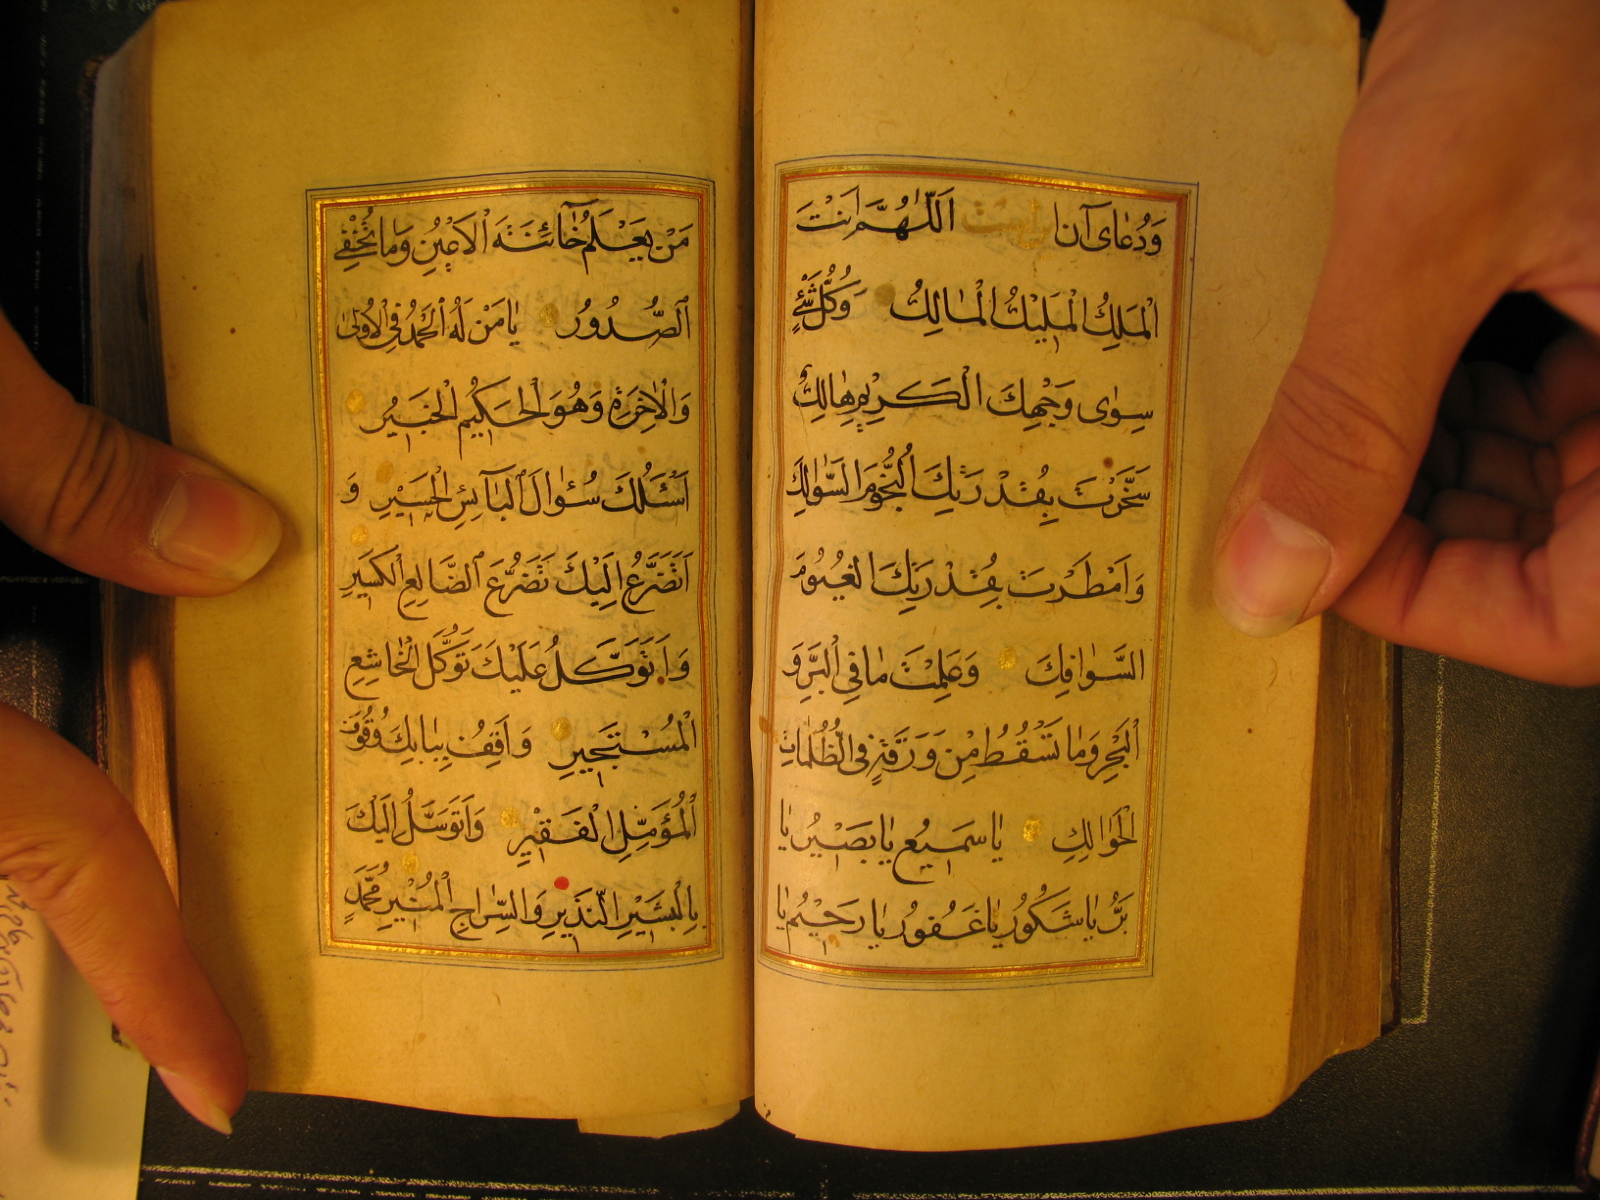 وَدُعٰاىِ آن اَللّٰهُمَّ اَنْتَ
الْمَلِكُ الْمَليْكُ الْمٰالِكُ وَكُلُّ شَيْءٍ
سِوٰى وَجْهِكَ الْكَرِيْمِ هٰالِكٌ
سَخَّرْتَ بِقُدْرَتِكَ النُّجُوْمَ السَّوٰالِكَ
وَاَمْطَرْتَ بِقُدْرَتِكَ الْغُيُوْمَ
السَّوٰافِكَ وَعَلِمْتَ مٰا فِي الْبَرِّ وَ
الْبَحْرِ وَمٰا تَسْقُطُ مِنْ وَرَقَةٍ فِى الظُّلُمٰاتِ
الْحَوٰالِكِ يٰا سَميْعُ يٰا بَصيْرُ يٰا
بَرُّ يٰا شَكُوْرُ يٰا غَفُوْرُ يٰا رَحيْمُ يٰا
مَنْ يَعْلَمُ خٰٓائِنَةَ الْاَعْيُنِ وَمٰا تُخْفِي
الصُّدُوْرُ يٰا مَنْ لَهُ الْحَمْدُ فِي الْاُوْلٰى
وَالْاٰخِرَةِ وَهُوَ الْحَكيْمُ الْخَبيْرُ
اَسْئَلُكَ سُئوٰالَ الْبٰآئِسِ الْحَسيْرِ وَ
اَتَضَرَّعُ اِلَيْكَ تَضَرُّعَ الضّٰالِعِ الْكَسيْرِ
وَاَتَوَكَّلُ عَلَيْكَ تَوَكُّلَ الْخٰاشِعِ
الْمُسْتَجيْرِ وَاَقِفُ بِبٰابِكَ وُقُوْفَ
الْمُؤَمِّلِ الْفَقيْرِ وَاَتَوَسَّلُ اِلَيْكَ
بِالْبَشيْرِ النَّذيْرِ وَالسِّرٰاجِ الْمُنيْرِ مُحَمَّدٍ